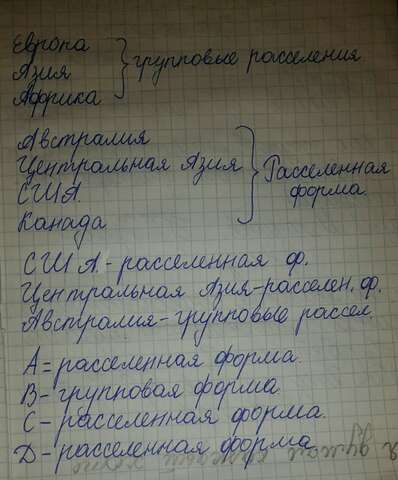 Европа
Азия } групповые расселения
Африка
Австралия
Центральная Азия } Расселенная
США. форма.
Канада
США.- расселенная ф.
Центральная Азия-расселен. ф.
Австралия-групповые рассел.
А = расселенная форма.
В- групповая форма.
С - расселенная форма.
D - расселенная форма